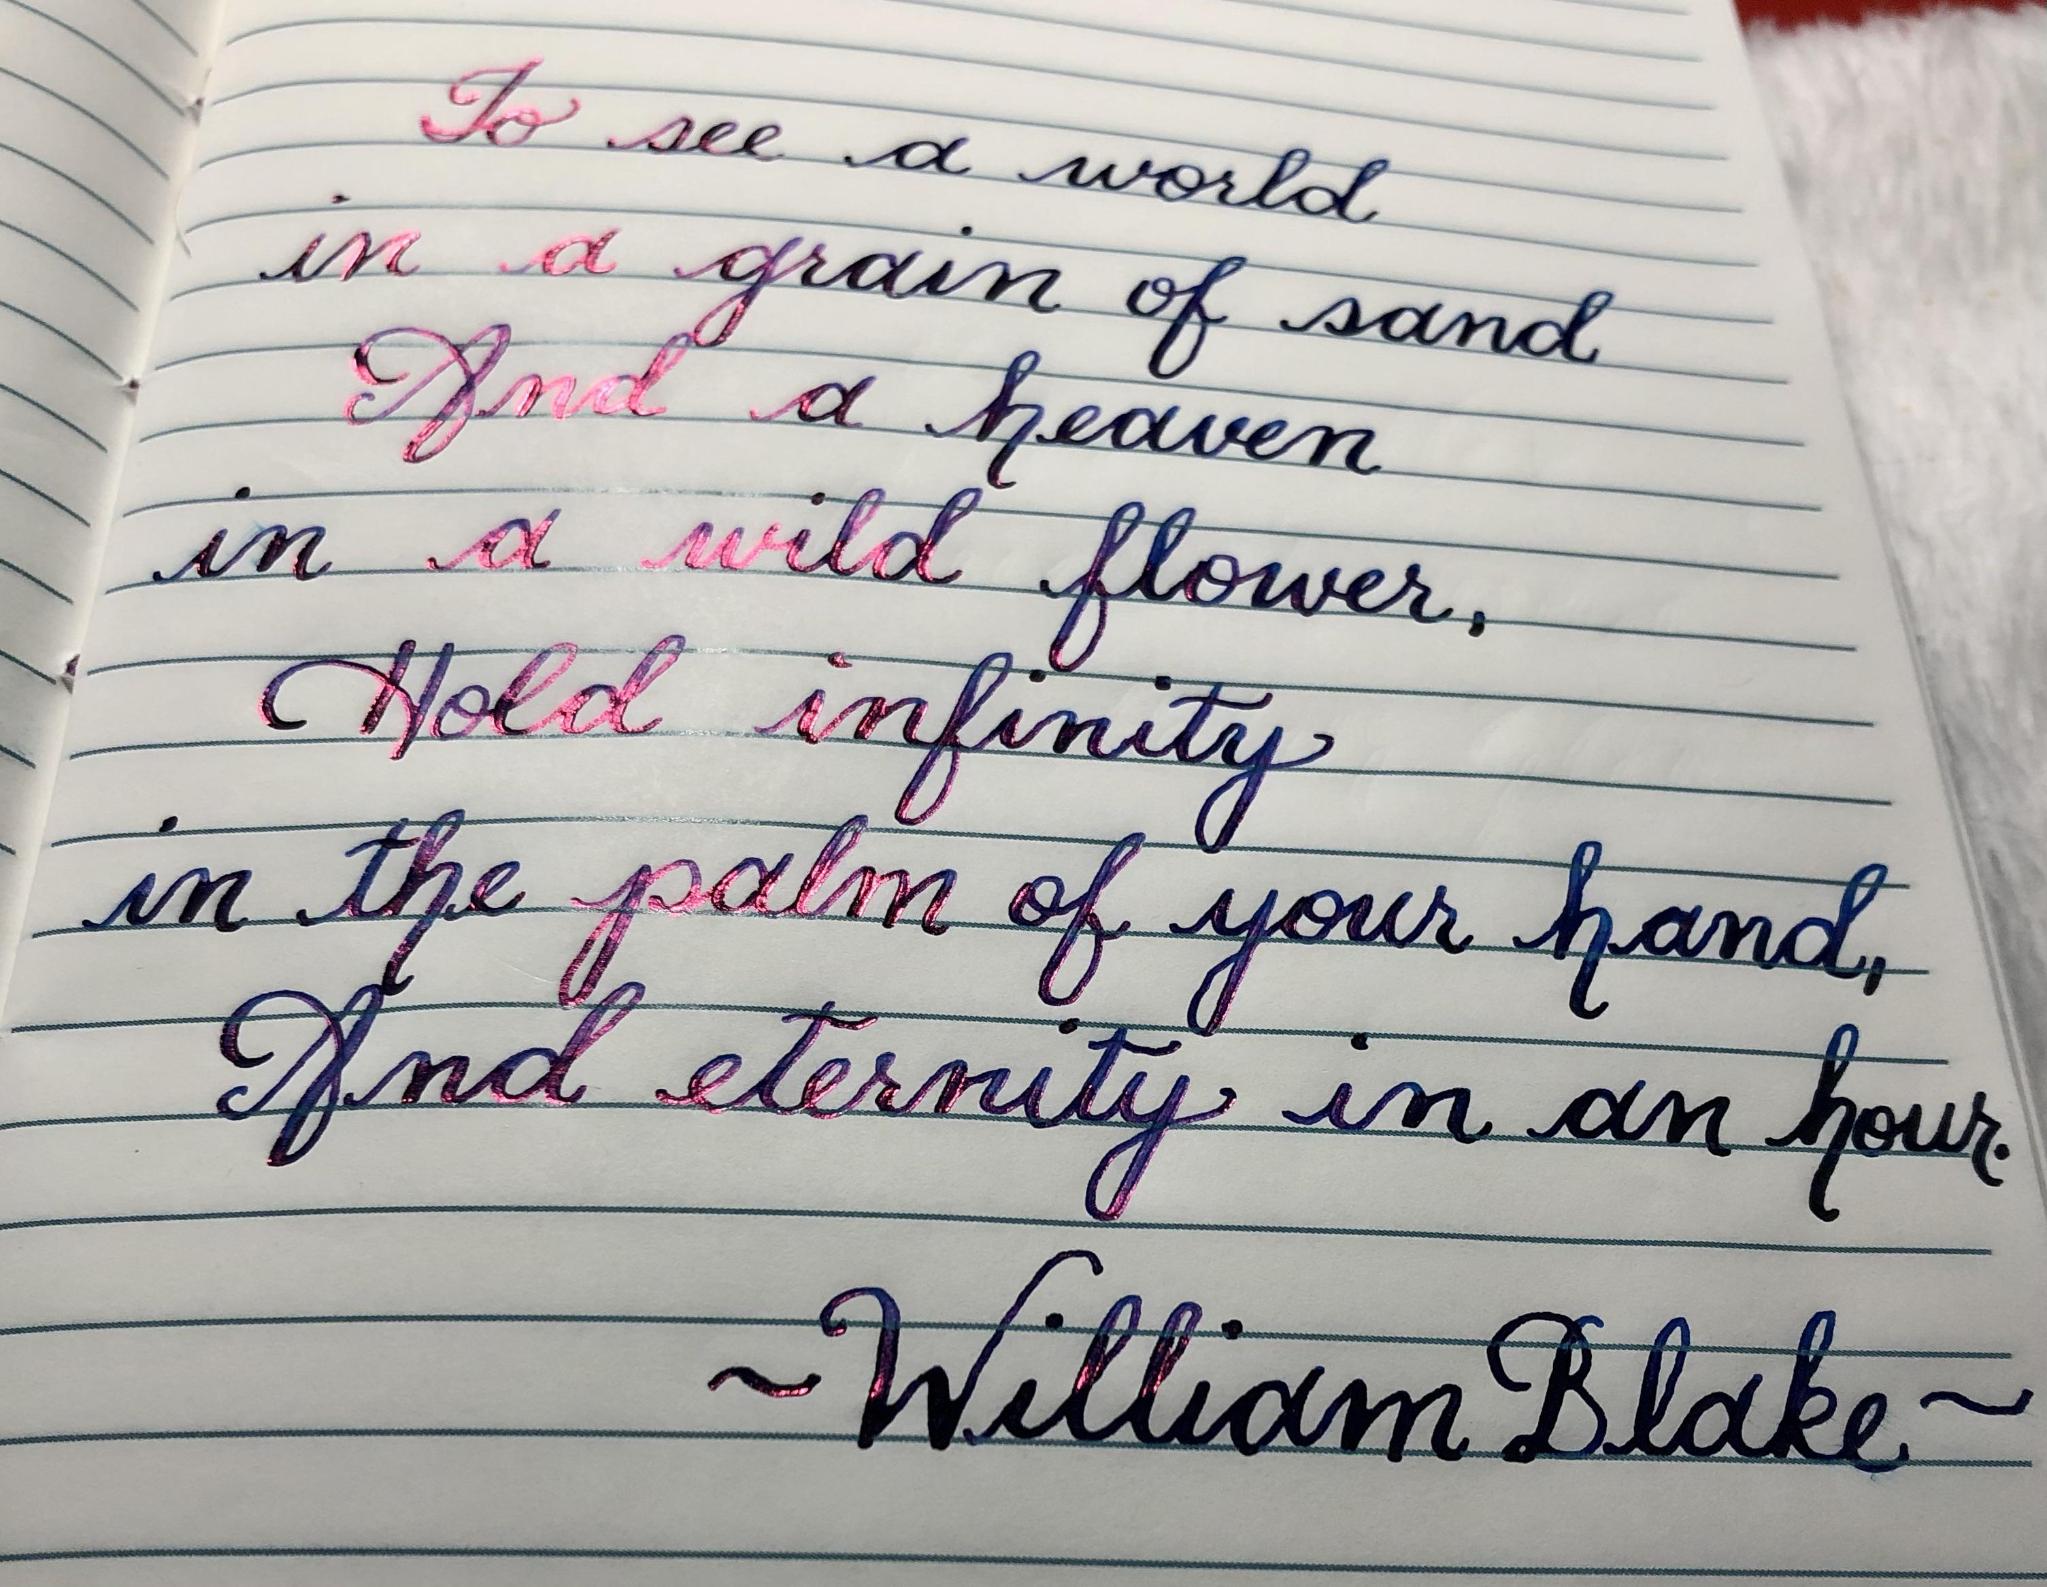 To see a world
in a grain of sand
And a heaven
in a wild flower,
Hold infinity
in the palm of your hand,
And eternity in an hour.
~William Blake~